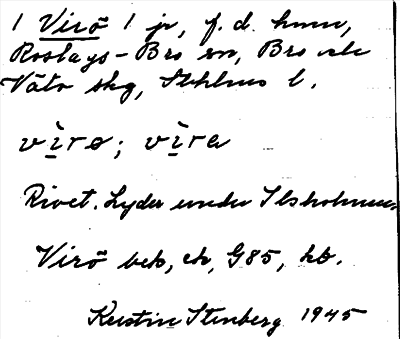 1 Virö 1 jr, f.d. hmn,
Roslags-Bro sn, Bro och
Väto skg, Sthlms l.
vìrø; vìra
Rivet. Lyder under Ilsholmen.
Virö bek, ek, G85, hö.
Kerstin Stenberg 1945